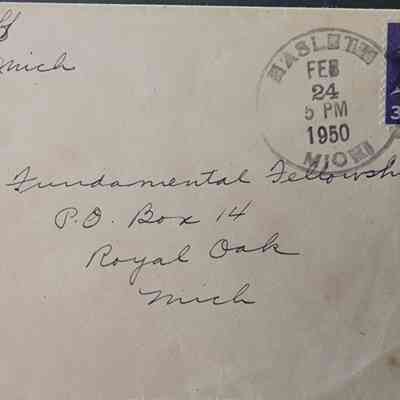 Mich
HASLETT
FEB
24
5 PM
1950
MICH
3
Fundamental Fellowsh
P.O. Box 14
Royal Oak
Mich